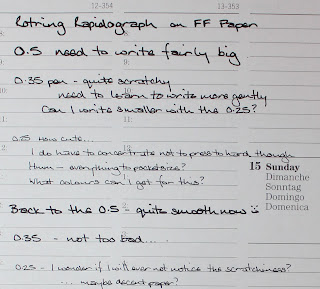 12-354 13-353
Rotring Rapidograph on FF Paper
0.5 need to write fairly big
0.35 pen - quite scratchy
need to learn to write more gently
Can I write smaller with the 0.25?
0.25 How cute...
I do have to concentrate not to press to hard though
Hum - everything to pocket size?
What colours can I get for this?
15 Sunday
Dimanche
Sonntag
Domingo
Domenica
Back to the 0.5 - quite smooth now :)
0.35 - not too bad.....
0.25 - I wonder if I will ever not notice the scratchiness?
... maybe decent paper?